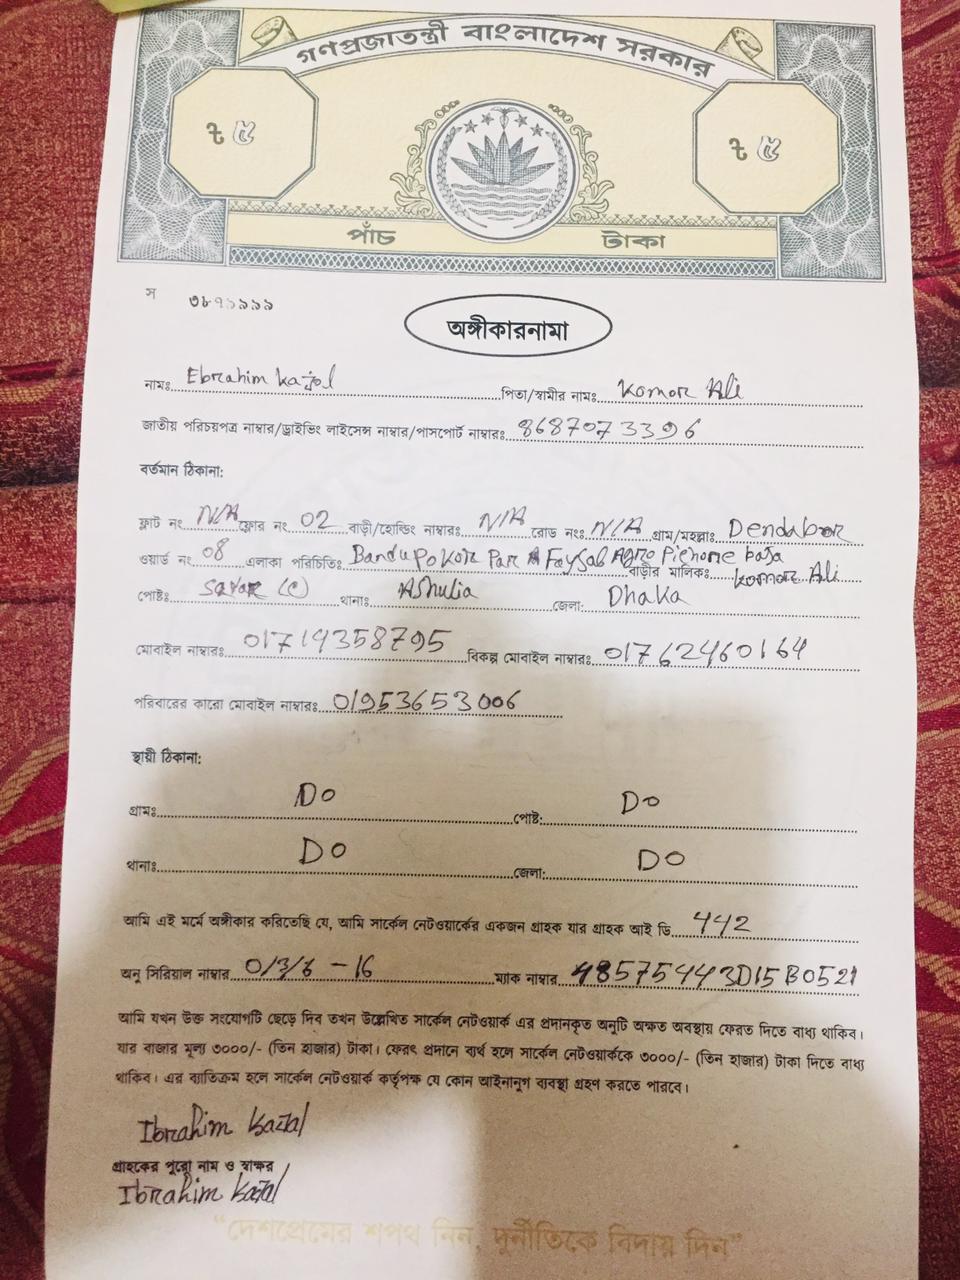 গণপ্রজাতন্ত্রী বাংলাদেশ সরকার
৳ ৫ ৳ ৫
পাঁচ টাকা
স ৩৮৭১৯৯৯
অঙ্গীকারনামা
নামঃ Ebrahim kajol পিতা/স্বামীর নামঃ Komor Ali
জাতীয় পরিচয়পত্র নাম্বার/ড্রাইভিং লাইসেন্স নাম্বার/পাসপোর্ট নাম্বারঃ 8687073396
বর্তমান ঠিকানা:
ফ্লাট নং N/A ফ্লোর নং 02 বাড়ী/হোল্ডিং নাম্বারঃ N/A রোড নংঃ N/A গ্রাম/মহল্লাঃ Dendabor
ওয়ার্ড নং 08 এলাকা পরিচিতিঃ Bandu Pokor Par Faysal Agro Pichone basa
বাড়ীর মালিকঃ Komor Ali
পোষ্টঃ Savar (c) থানাঃ Ashulia জেলা: Dhaka
মোবাইল নাম্বারঃ 01714358795 বিকল্প মোবাইল নাম্বারঃ 01762460164
পরিবারের কারো মোবাইল নাম্বারঃ 01953653006
স্থায়ী ঠিকানা:
গ্রামঃ Do পোষ্ট: Do
থানাঃ Do জেলা: Do
আমি এই মর্মে অঙ্গীকার করিতেছি যে, আমি সার্কেল নেটওয়ার্কের একজন গ্রাহক যার গ্রাহক আই ডি 442
অনু সিরিয়াল নাম্বার 0/3/6 - 16 ম্যাক নাম্বার 485754443D15B0521
আমি যখন উক্ত সংযোগটি ছেড়ে দিব তখন উল্লেখিত সার্কেল নেটওয়ার্ক এর প্রদানকৃত অনুটি অক্ষত অবস্থায় ফেরত দিতে বাধ্য থাকিব।
যার বাজার মূল্য ৩০০০/- (তিন হাজার) টাকা। ফেরৎ প্রদানে ব্যর্থ হলে সার্কেল নেটওয়ার্ককে ৩০০০/- (তিন হাজার) টাকা দিতে বাধ্য
থাকিব। এর ব্যতিক্রম হলে সার্কেল নেটওয়ার্ক কর্তৃপক্ষ যে কোন আইনানুগ ব্যবস্থা গ্রহণ করতে পারবে।
Ibrahim Kazal
গ্রাহকের পুরো নাম ও স্বাক্ষর
Ibrahim Kazal
"দেশপ্রেমের শপথ নিন, দুর্নীতিকে বিদায় দিন"